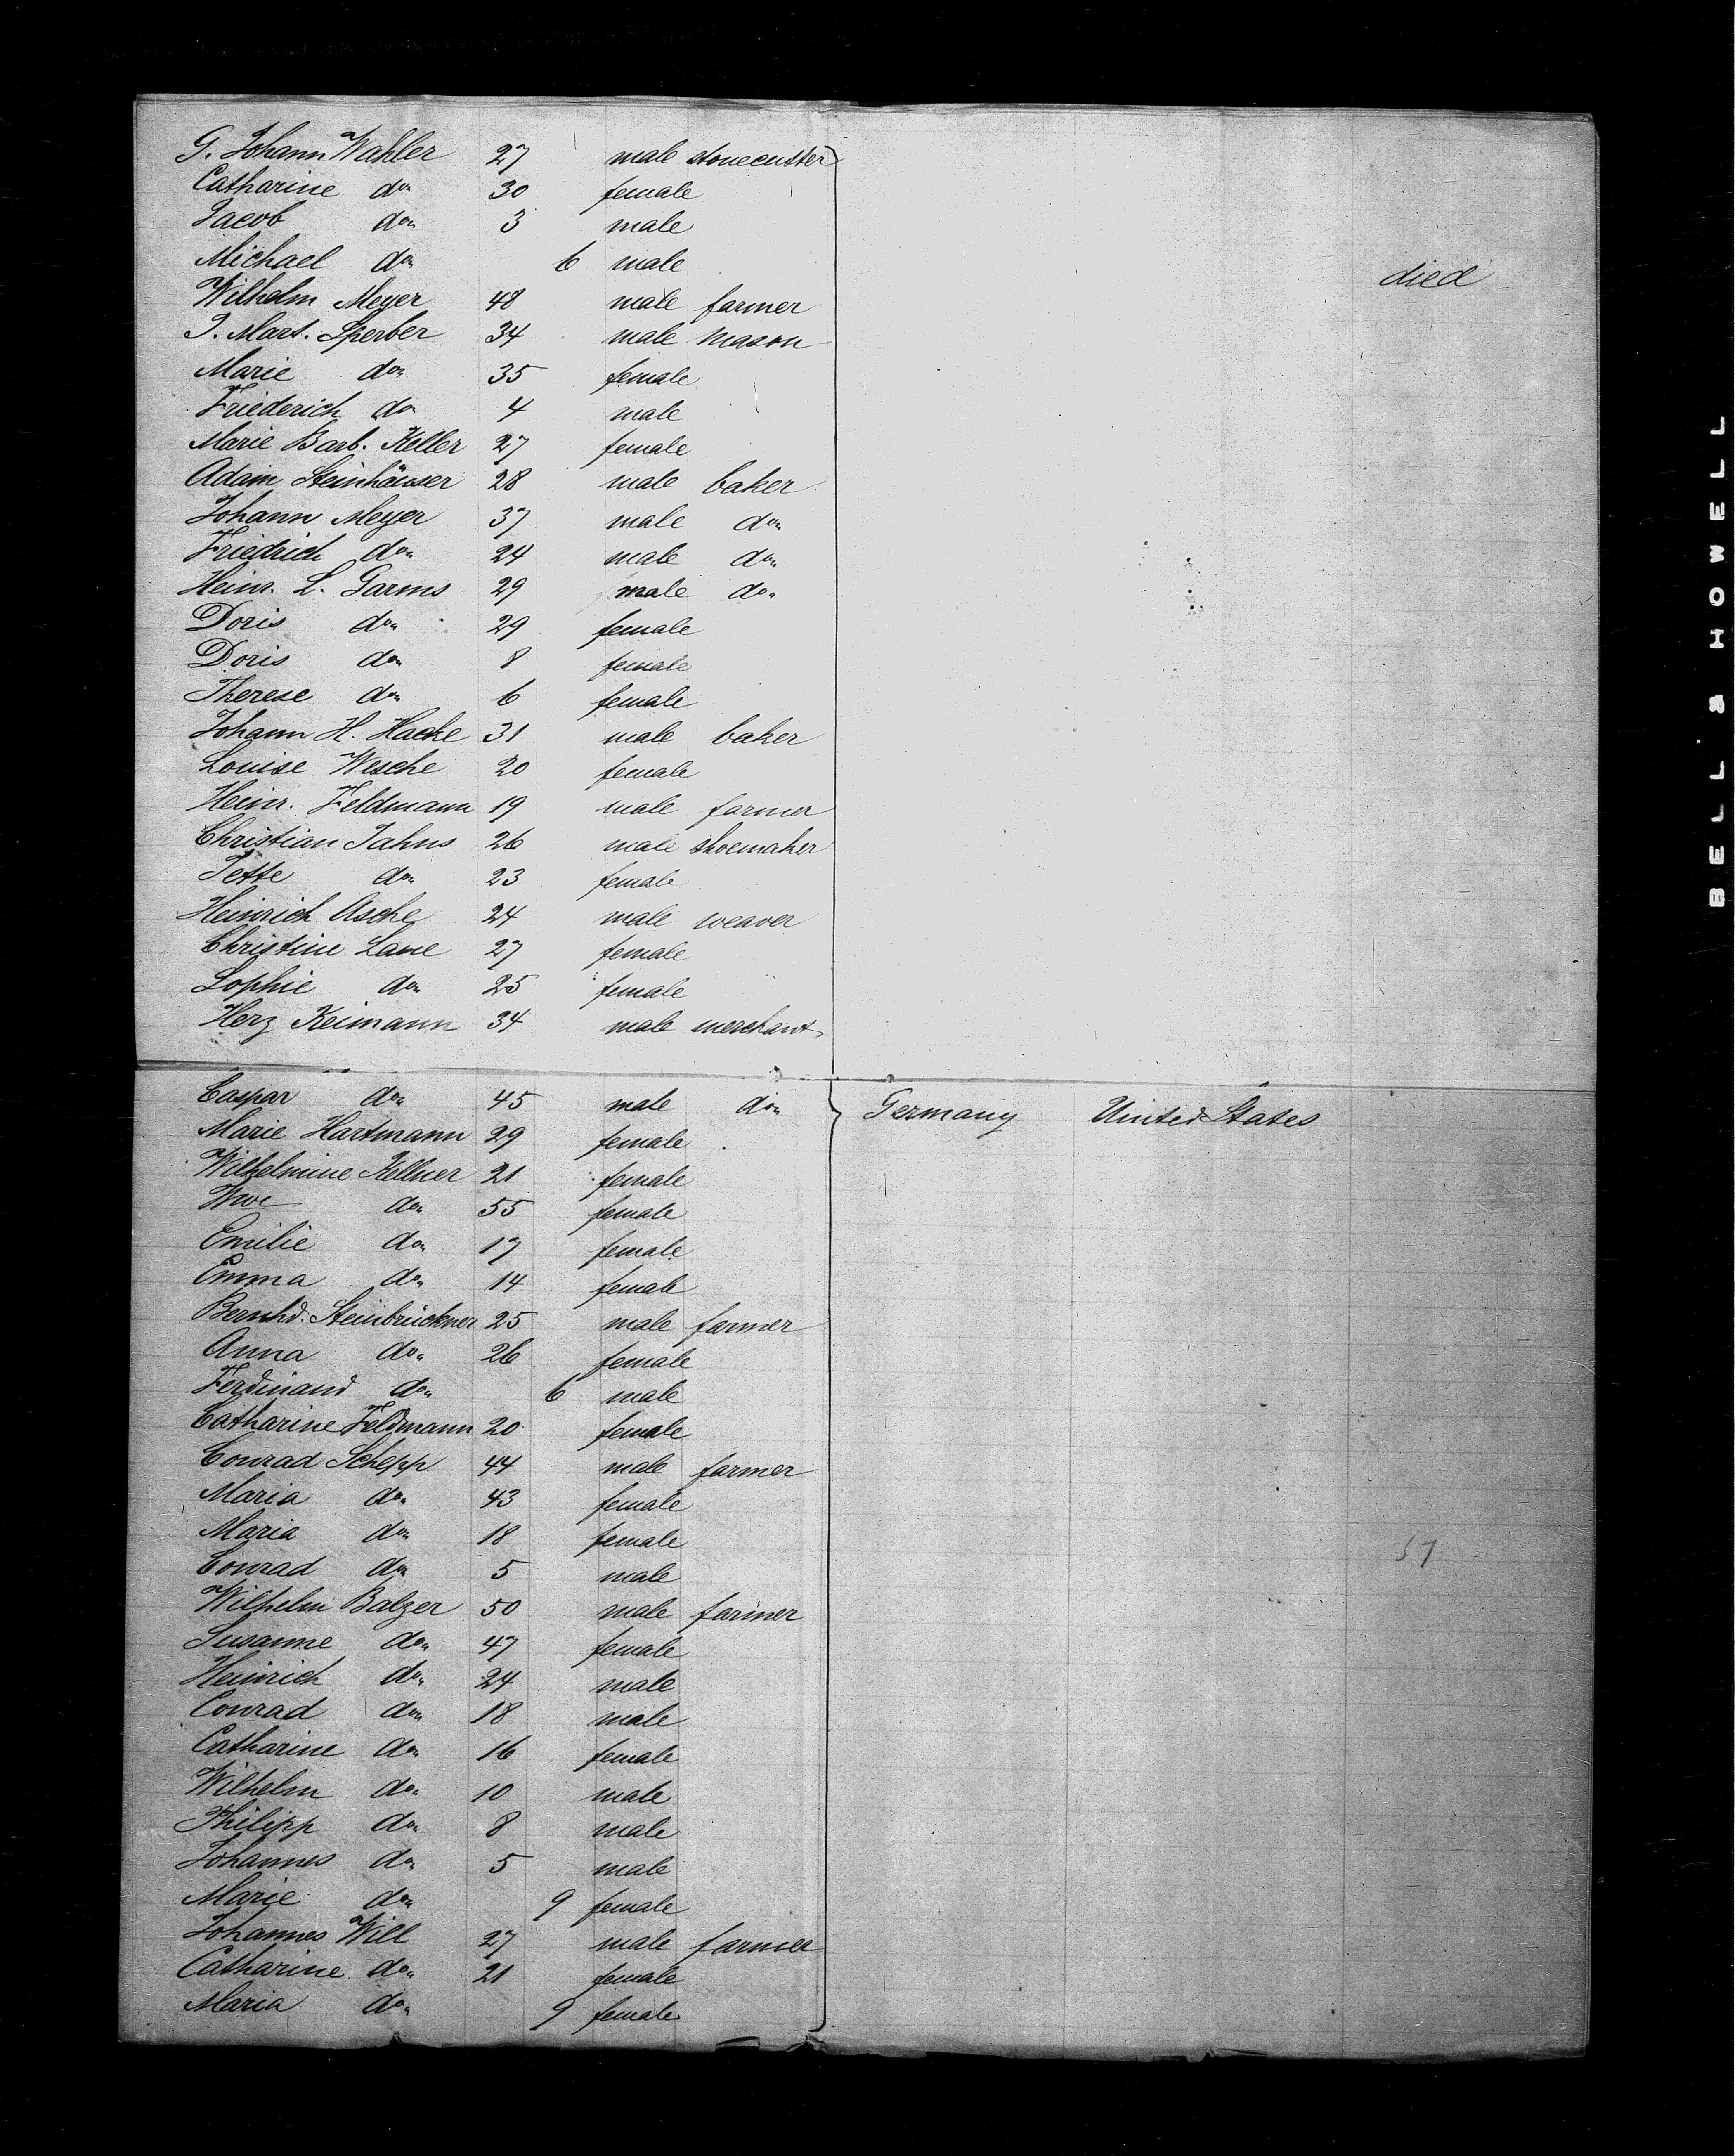 G. Johann Wahler 27 male stonecutter
Catharine do 30 female
Jacob do 3 male
Michael do 6 male died
Wilhelm Meyer 48 male farmer
J. Mart. Sperber 34 male mason
Marie do 35 female
Friederich do 4 male
Marie Barb. Keller 27 female
Adam Steinhäuser 28 male baker
Johann Meyer 37 male do
Friedrich do 24 male do
Heinr. L. Garms 29 male do
Doris do 29 female
Doris do 8 female
Therese do 6 female
Johann H. Hacke 31 male baker
Louise Wesche 20 female
Heinr. Feldmann 19 male farmer
Christian Jahns 26 male shoemaker
Jette do 23 female
Heinrich Asche 24 male weaver
Christine Lane 27 female
Sophie do 25 female
Herz Keimann 34 male merchant
Caspar do 45 male do Germany United States
Marie Hartmann 29 female
Wilhelmine Kellner 21 female
Wwe do 55 female
Emilie do 17 female
Emma do 14 female
Bernhd. Steinbrückner 25 male farmer
Anna do 26 female
Ferdinand do 6 male
Catharine Feldmann 20 female
Conrad Schepp 44 male farmer
Maria do 43 female
Maria do 18 female
Conrad do 5 male 51
Wilhelm Balzer 50 male farmer
Susanne do 47 female
Heinrich do 24 male
Conrad do 18 male
Catharine do 16 female
Wilhelm do 10 male
Philipp do 8 male
Johannes do 5 male
Marie do 9 female
Johannes Will 27 male farmer
Catharine do 21 female
Maria do 9 female
BELL & HOWELL